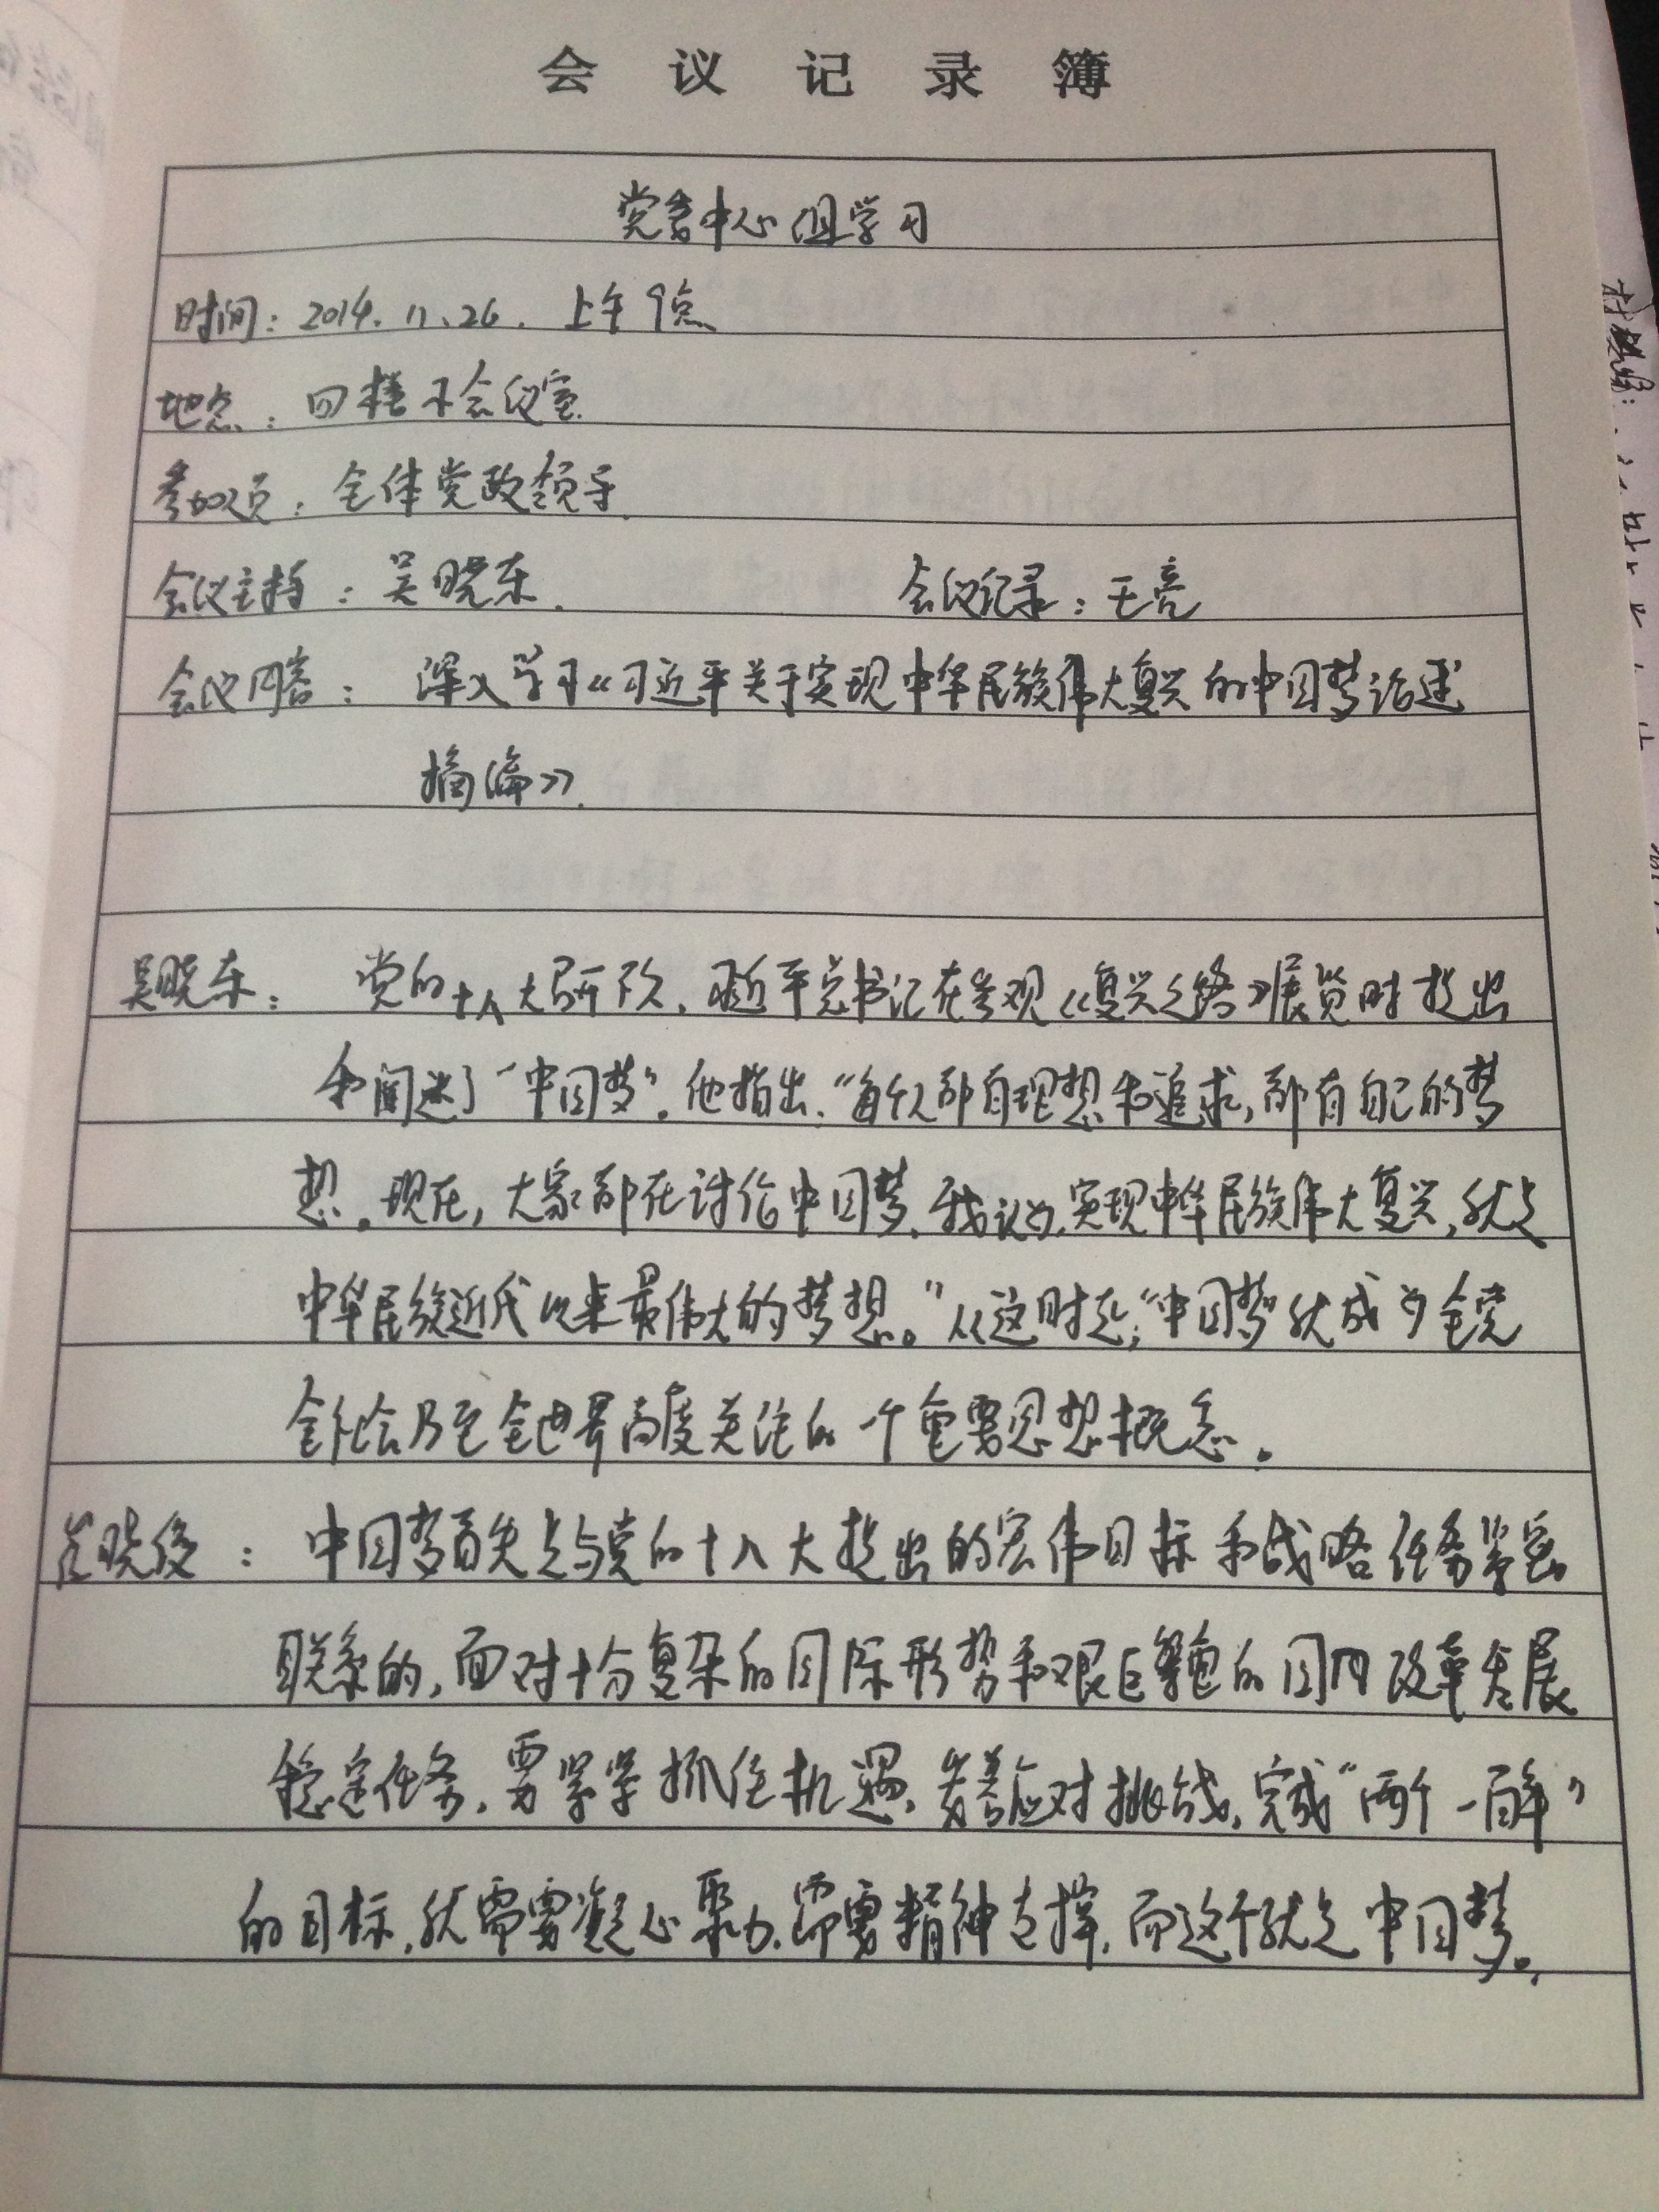 会议记录簿
党委中心组学习
时间：2014.11.26. 上午9点
地点：四楼小会议室
参加人员：全体党政领导.
会议主持：吴晓东. 会议记录：王亮
会议内容：深入学习《习近平关于实现中华民族伟大复兴的中国梦论述
摘编》.
吴晓东：党的十八大召开不久，习近平总书记在参观《复兴之路》展览时提出
和阐述了“中国梦”。他指出：“每个人都有理想和追求，都有自己的梦
想。现在，大家都在讨论中国梦，我认为，实现中华民族伟大复兴，就是
中华民族近代以来最伟大的梦想。”从这时起，“中国梦”就成为全党
全社会乃至全世界高度关注的一个重要思想概念。
晓俊：中国梦首先是与党的十八大提出的宏伟目标和战略任务紧密
联系的，面对十分复杂的国际形势和艰巨繁重的国内改革发展
稳定任务，要紧紧抓住机遇，妥善应对挑战，完成“两个一百年”
的目标，就需要凝心聚力，需要精神支撑，而这个就是中国梦。